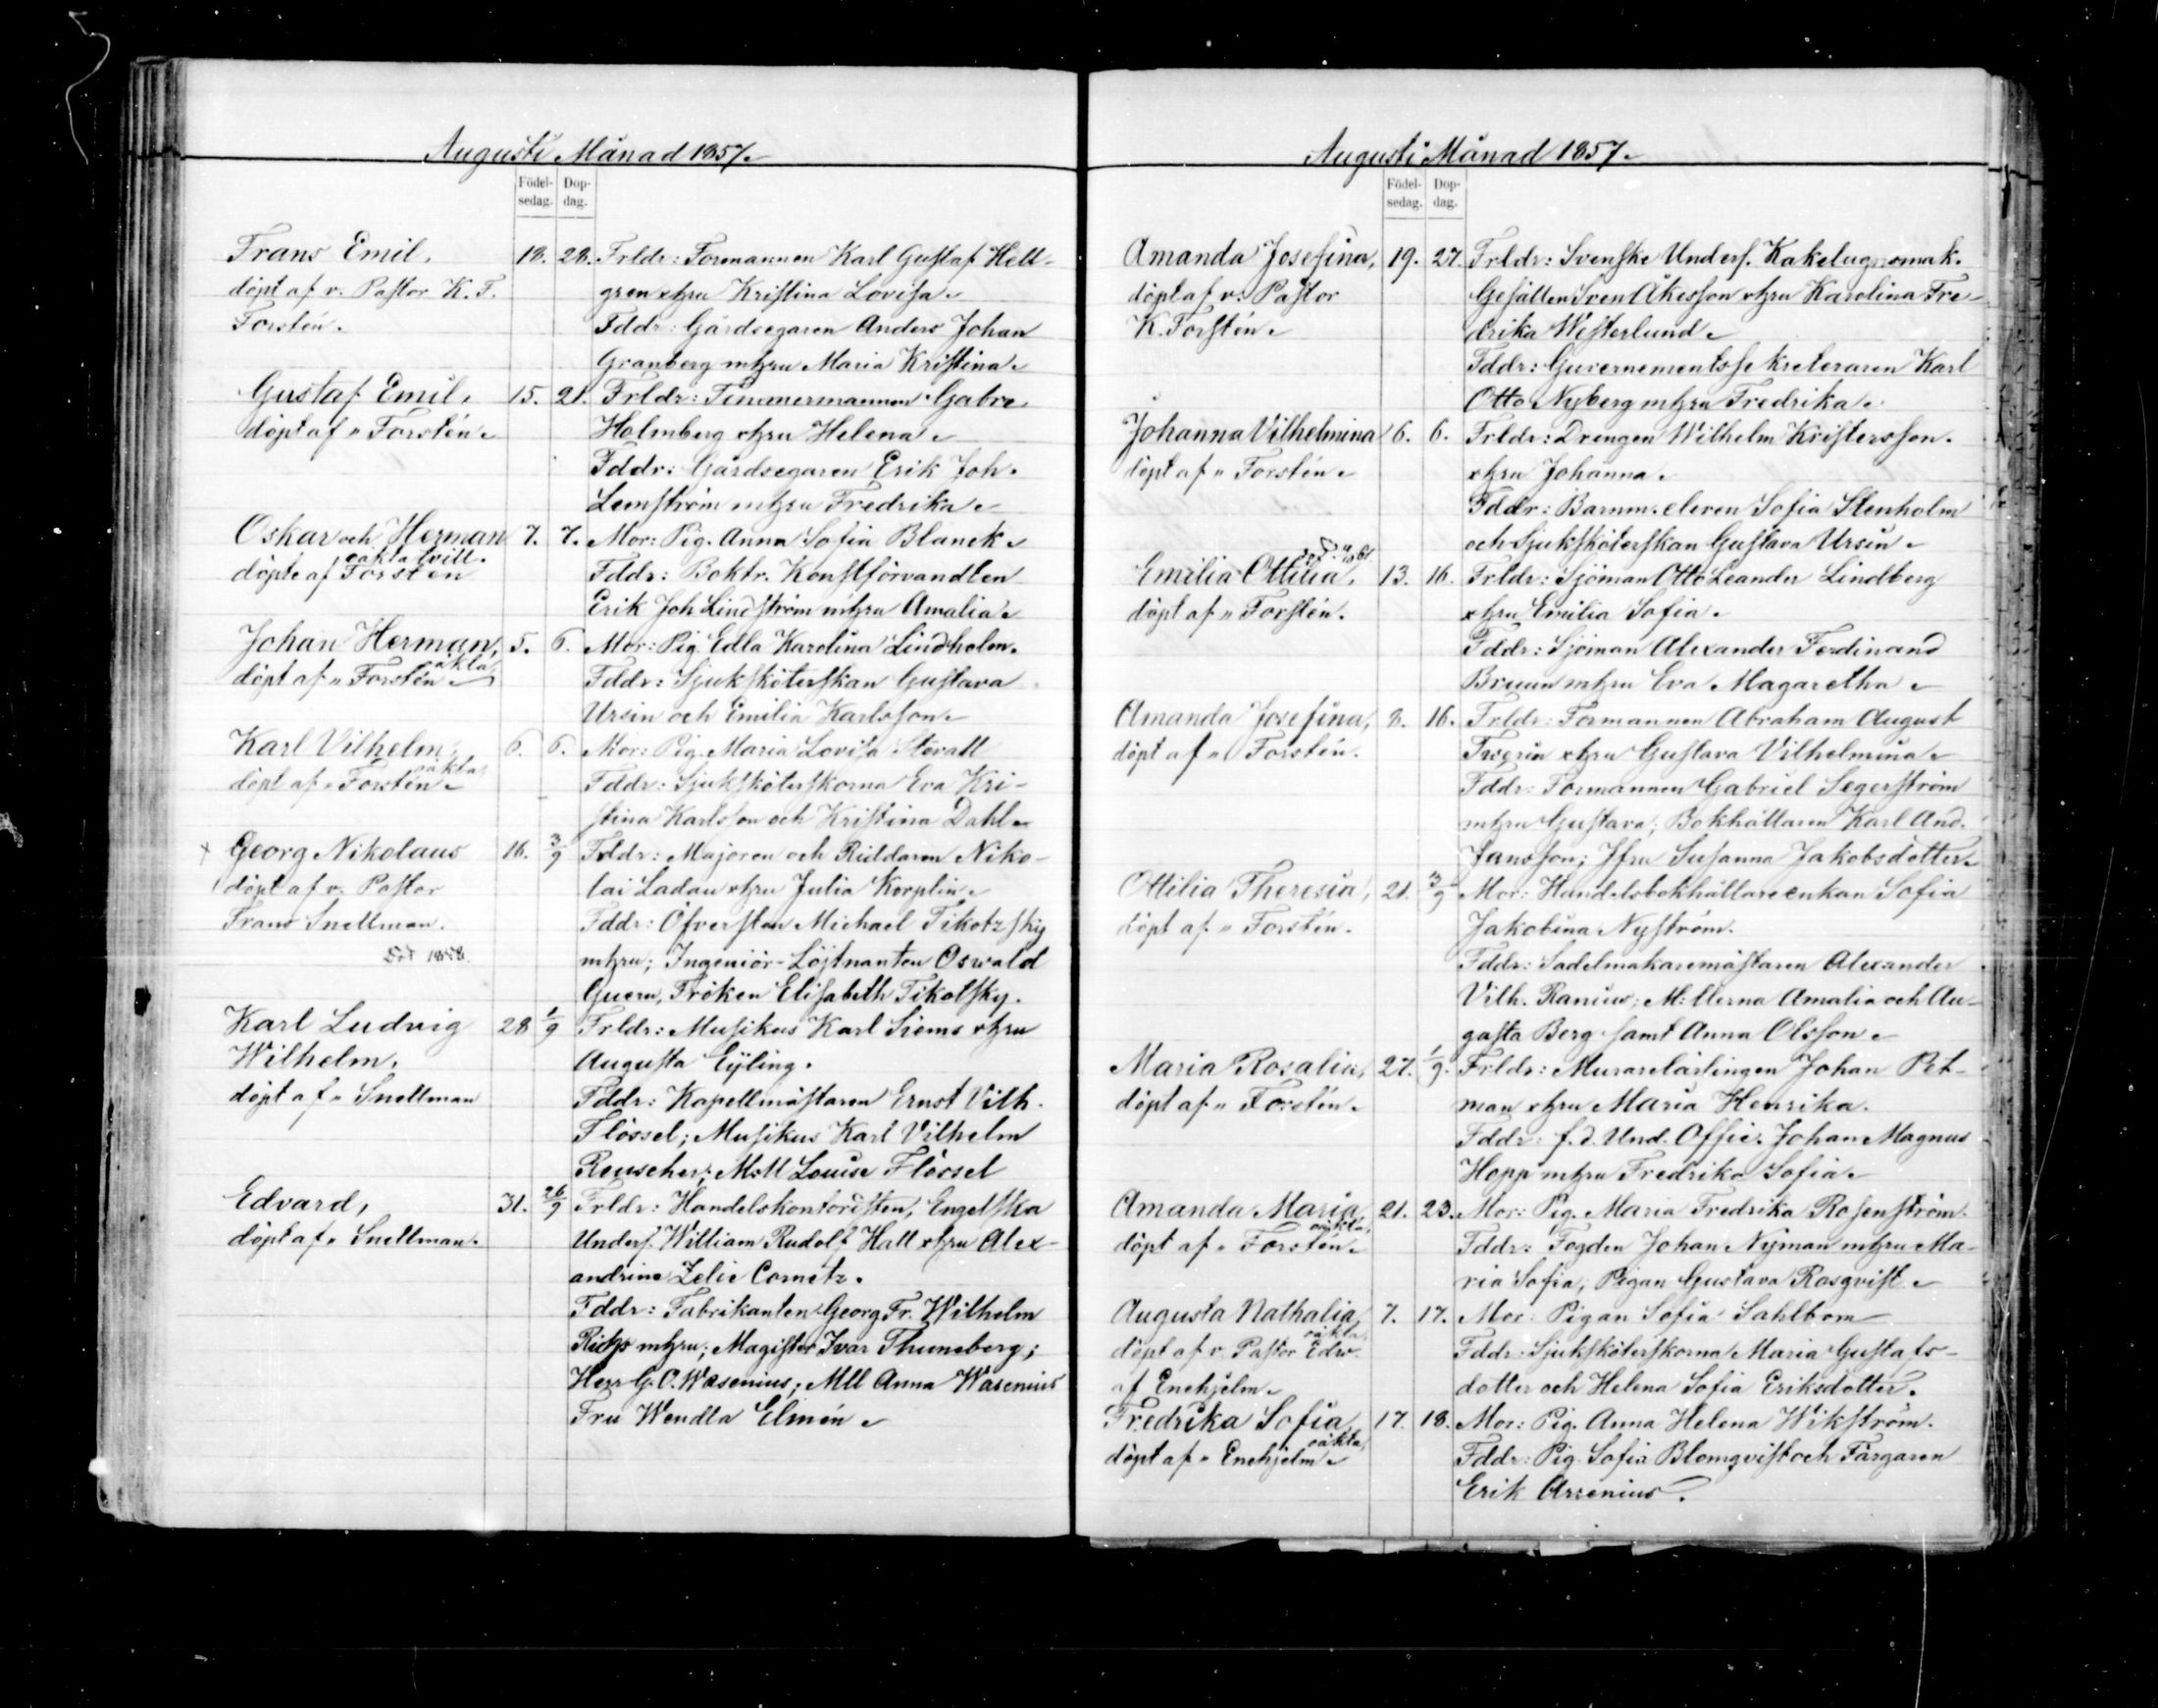 Augusti Månad 1857.
Födel-
sedag.
Dop-
dag.
Frans Emil, 18. 28. Frldr: Formannen Karl Gustaf Hell-
döpt af v. Pastor K. T. gren o hzu Kristina Lovisa.
Forstén. Fddr: Gårdsegaren Anders Johan
Granberg m hzu Maria Kristina.
Gustaf Emil, 15. 21. Frldr: Timmermannen Gabr.
döpt af " Forstén. Holmberg o hzu Helena.
Fddr: Gårdsegaren Erik Joh.
Lemström m hzu Fredrika.
Oskar och Herman 7. 7. Mor: Pig. Anna Sofia Blanck.
oäkta tvill.
döpte af Forstén Fddr: Boktr. Konstförvandten
Erik Joh Lindström m hzu Amalia.
Johan Herman, 5. 6. Mor: Pig Edla Karolina Lindholm.
oäkta
döpt af " Forstén. Fddr: Sjuksköterskan Gustava
Ursin och Emilia Karlsson.
Karl Vilhelm, 6. 6. Mor: Pig. Maria Lovisa
oäkta
döpt af " Forstén. Fddr: Sjuksköterskorna Eva Kri-
stina Karlsson och Kristina Dahl
x Georg Nikolaus 16. 3/9 Frldr: Majoren och Riddaren Niko-
döpt af v. Pastor lai Ladau o hzu Julia Korplin.
Frans Snellman. Fddr: Öfversten Michael Tikotzsky
Död 1858. m hzu; Ingeniör-Löjtnanten Oswald
Guern, Fröken Elisabeth Tikotsky.
Karl Ludvig 28 1/9 Frldr: Musikus Karl Siems o hzu
Wilhelm, Augusta Eyling.
döpt af " Snellman Fddr: Kapellmästaren Ernst Vilh.
Flössel; Musikus Karl Vilhelm
Reuscher; Mll Louise Flössel
Edvard, 31. 26/9 Frldr: Handelskontoristen, Engelska
döpt af " Snellman. Unders. William Rudolf Hall o hzu Alex-
andrine Zelie Cometz.
Fddr: Fabrikanten Georg Fr. Wilhelm
m hzu; Magister Ivar Thuneberg;
Herr G. O. Wasenius; Mll Anna Wasenius
Fru Wendla Elmén.
Augusti Månad 1857.
Födel-
sedag.
Dop-
dag.
Amanda Josefina, 19. 27. Frldr: Svenske Unders. Kakelugnsmak.
döpt af v. Pastor Gesällen Sven Åkesson o hzu Karolina Fre-
K. Forstén. drika Westerlund.
Fddr: Guvernementssekreteraren Karl
Otto Nyberg m hzu Fredrika.
Johanna Vilhelmina 6. 6. Frldr: Drengen Wilhelm Kristersson.
döpt af " Forstén. o hzu Johanna.
Fddr: Barnm. eleven Sofia Stenholm
och Sjuksköterskan Gustava Ursin.
Emilia Ottilia, 13. 16. Frldr: Sjöman Otto Leander Lindberg
döpt af " Forstén. o hzu Emilia Sofia.
Fddr: Sjöman Alexander Ferdinand
Bruun m hzu Eva Magaretha.
Amanda Josefina, 8. 16. Frldr: Formannen Abraham August
döpt af " Forstén. o hzu Gustava Vilhelmina.
Fddr: Formannen Gabriel Segerström
m hzu Gustava; Bokhållaren Karl And.
Jansson; Jfru Susanna Jakobsdotter.
Ottilia Theresia, 21. 3/9 Mor: Handelsbokhållareenkan Sofia
döpt af " Forstén. Jakobina Nyström.
Fddr: Sadelmakaremästaren Alexander
Vilh. Ranius; M:llerna Amalia och Au-
gusta Berg samt Anna Olsson.
Maria Rosalia, 27. 1/9. Frldr: Murarelärlingen Johan Pet-
döpt af " Forstén. man o hzu Maria Henrika.
Fddr: f. d. Und. Offic. Johan Magnus
Hopp m hzu Fredrika Sofia.
Amanda Maria, 21. 23. Mor: Pig. Maria Fredrika Rosenström.
oäkta,
döpt af " Forstén. Fddr: Fogden Johan Nyman m hzu Ma-
ria Sofia; Pigan Gustava Rosqvist.
Augusta Nathalia, 7. 17. Mor: Pigan Sofia Sahlbom
oäkta
döpt af v. Pastor Edv. Fddr: Sjuksköterskorna Maria Gustafs-
af Enehjelm. dotter och Helena Sofia Eriksdotter.
Fredrika Sofia, 17. 18. Mor: Pig. Anna Helena Wikström.
oäkta,
döpt af " Enehjelm. Fddr: Pig. Sofia Blomqvist och Färgaren
Erik Arrenius.